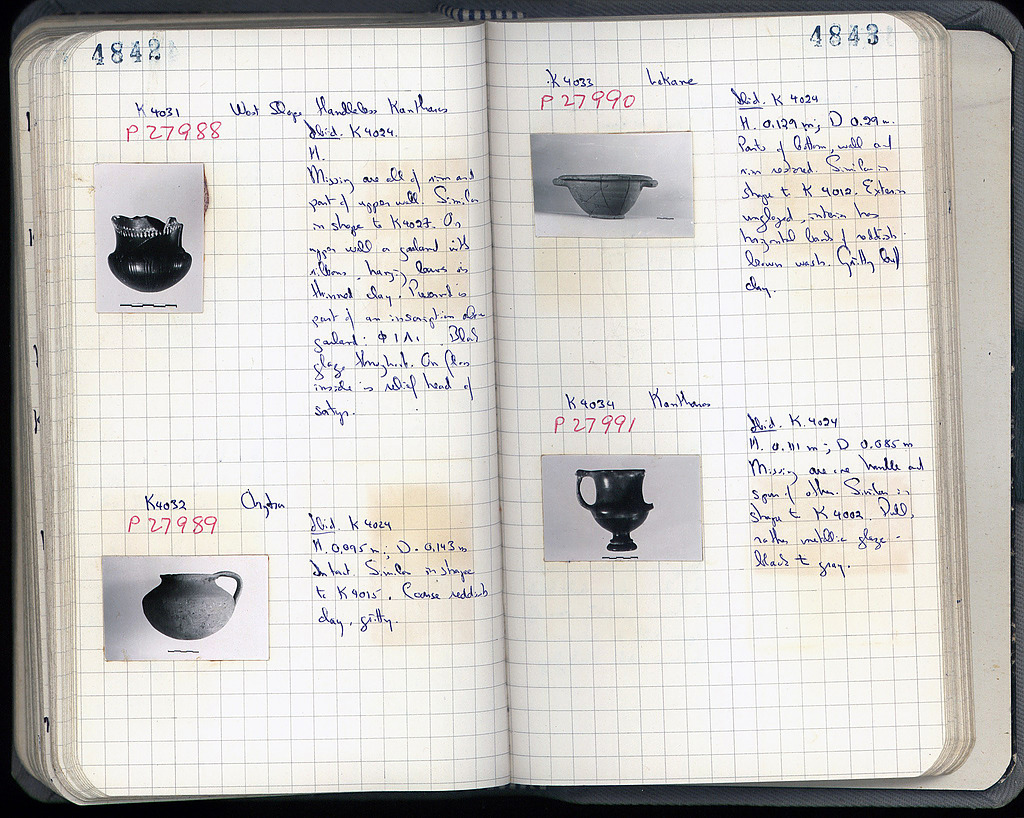 4842
K 4031 West Slope Handleless Kantharos
P 27988
Ibid. K 4024.
H.
Missing are all of rim and
part of upper wall. Similar
in shape to K4027. On
upper wall a garland with
ribbons, hanging leaves in
thinned clay. Preserved is
part of an inscription above
garland: ΦΙΛΙ. Black
glaze throughout. On floor
inside is relief head of
satyr.
K4032 Chytra
P 27989
Ibid. K 4024
H. 0.095 m; D. 0.143 m
Intact. Similar in shape
to K4015. Coarse reddish
clay, gritty.
4843
K 4033 Lekane
P 27990
Ibid. K 4024
H. 0.129 m; D 0.29 m.
Parts of bottom, wall and
rim restored. Similar in
shape to K 4012. Exterior
unglazed, interior has
horizontal bands of reddish
brown wash. Gritty buff
clay.
K 4034 Kantharos
P 27991
Ibid. K 4024
H. 0.111 m; D 0.085 m
Missing are one handle and
spur of other. Similar in
shape to K 4002. Dull,
rather metallic glaze -
black to gray.